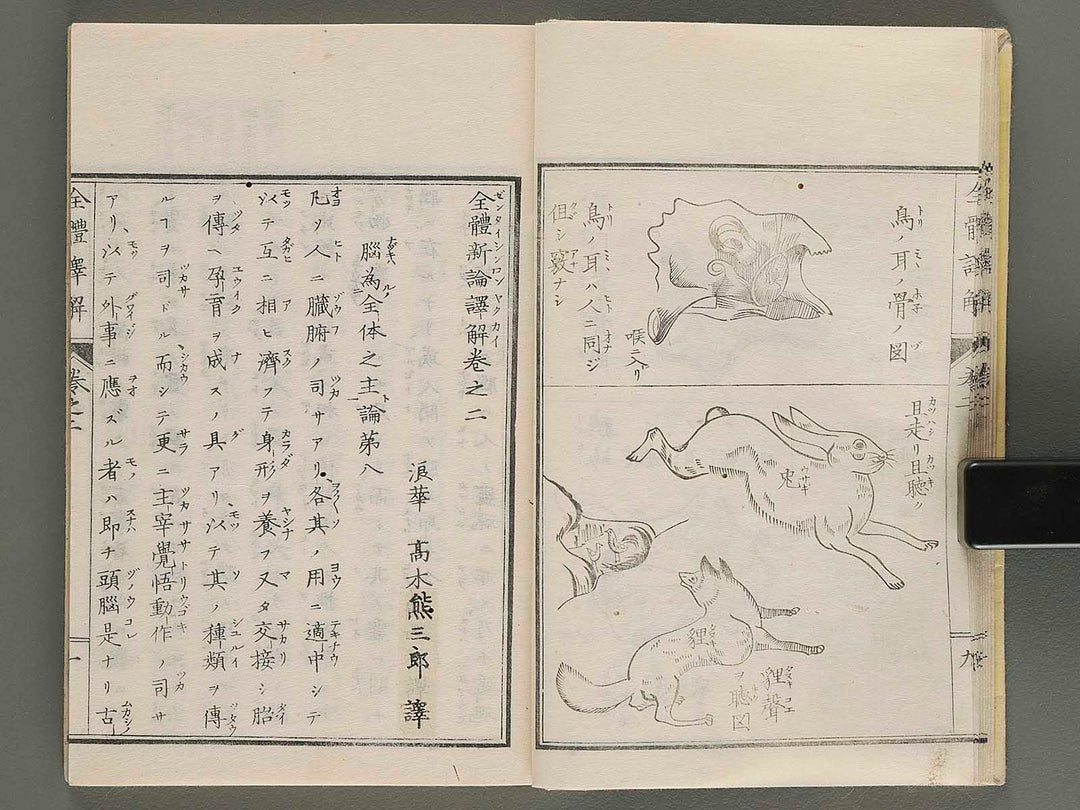 鳥ノ耳ノ骨ノ図
鳥ノ耳ハ人ニ同ジ
但シ竅ナシ
喉ニ入ル
且走リ且聴ク
兎
狸
狸聲
ヲ聴図
九
全體新論譯解卷之二
浪華 高木熊三郎譯
腦為全体之主論第八
凡ソ人ニ臓腑ノ司サアリ各其ノ用ニ適中シテ
以テ互ニ相ヒ濟フテ身形ヲ養フ又タ交接シ胎
ヲ傳ヘ孕育ヲ成スノ具アリ以テ其ノ種類ヲ傳
ルヿヲ司ドル而シテ更ニ主宰覺悟動作ノ司サ
アリ以テ外事ニ應ズル者ハ即チ頭腦是ナリ古
全體譯解
卷之二
一